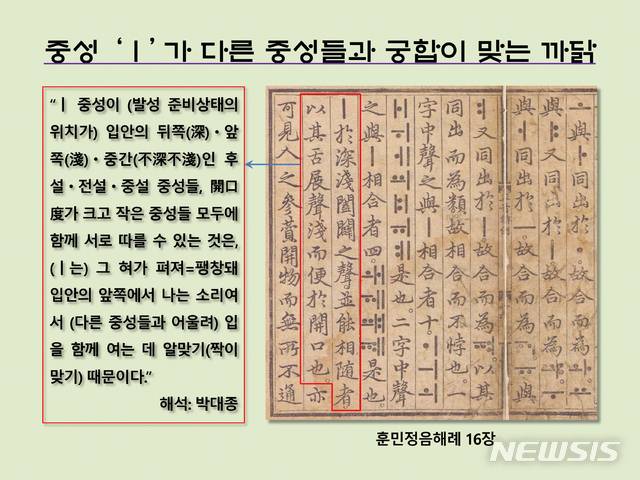 중성 ‘ㅣ’가 다른 중성들과 궁합이 맞는 까닭
“ㅣ 중성이 (발성 준비상태의
위치가) 입안의 뒤쪽(深)·앞
쪽(淺)·중간(不深不淺)인 후
설·전설·중설 중성들, 開口
度가 크고 작은 중성들 모두에
함께 서로 따를 수 있는 것은,
(ㅣ는) 그 혀가 펴져=팽창돼
입안의 앞쪽에서 나는 소리여
서 (다른 중성들과 어울려) 입
을 함께 여는 데 알맞기(짝이
맞기) 때문이다.”
해석: 박대종
ㅗ與ㅏ同出於ㆍ故合而為ㅘㅛ
與ㅑ又同出於ㅣ故合而為ㆇㅜ
與ㅓ同出於ㅡ故合而為ㅝㅠ與
ㅕ又同出於ㅣ故合而為ㆊ以其
同出而為類故相合而不悖也一
字中聲之與ㅣ相合者十ㆎㅢ
ㅚㅐㅟㅔㆉㅒㆌㅖ是也二字中聲
之與ㅣ相合者四ㅙㅞㆈㆋ是也
ㅣ於深淺闔闢之聲並能相隨者
以其舌展聲淺而便於開口也亦
可見人之參贊開物而無所不通
훈민정음해례 16장
NEWSIS